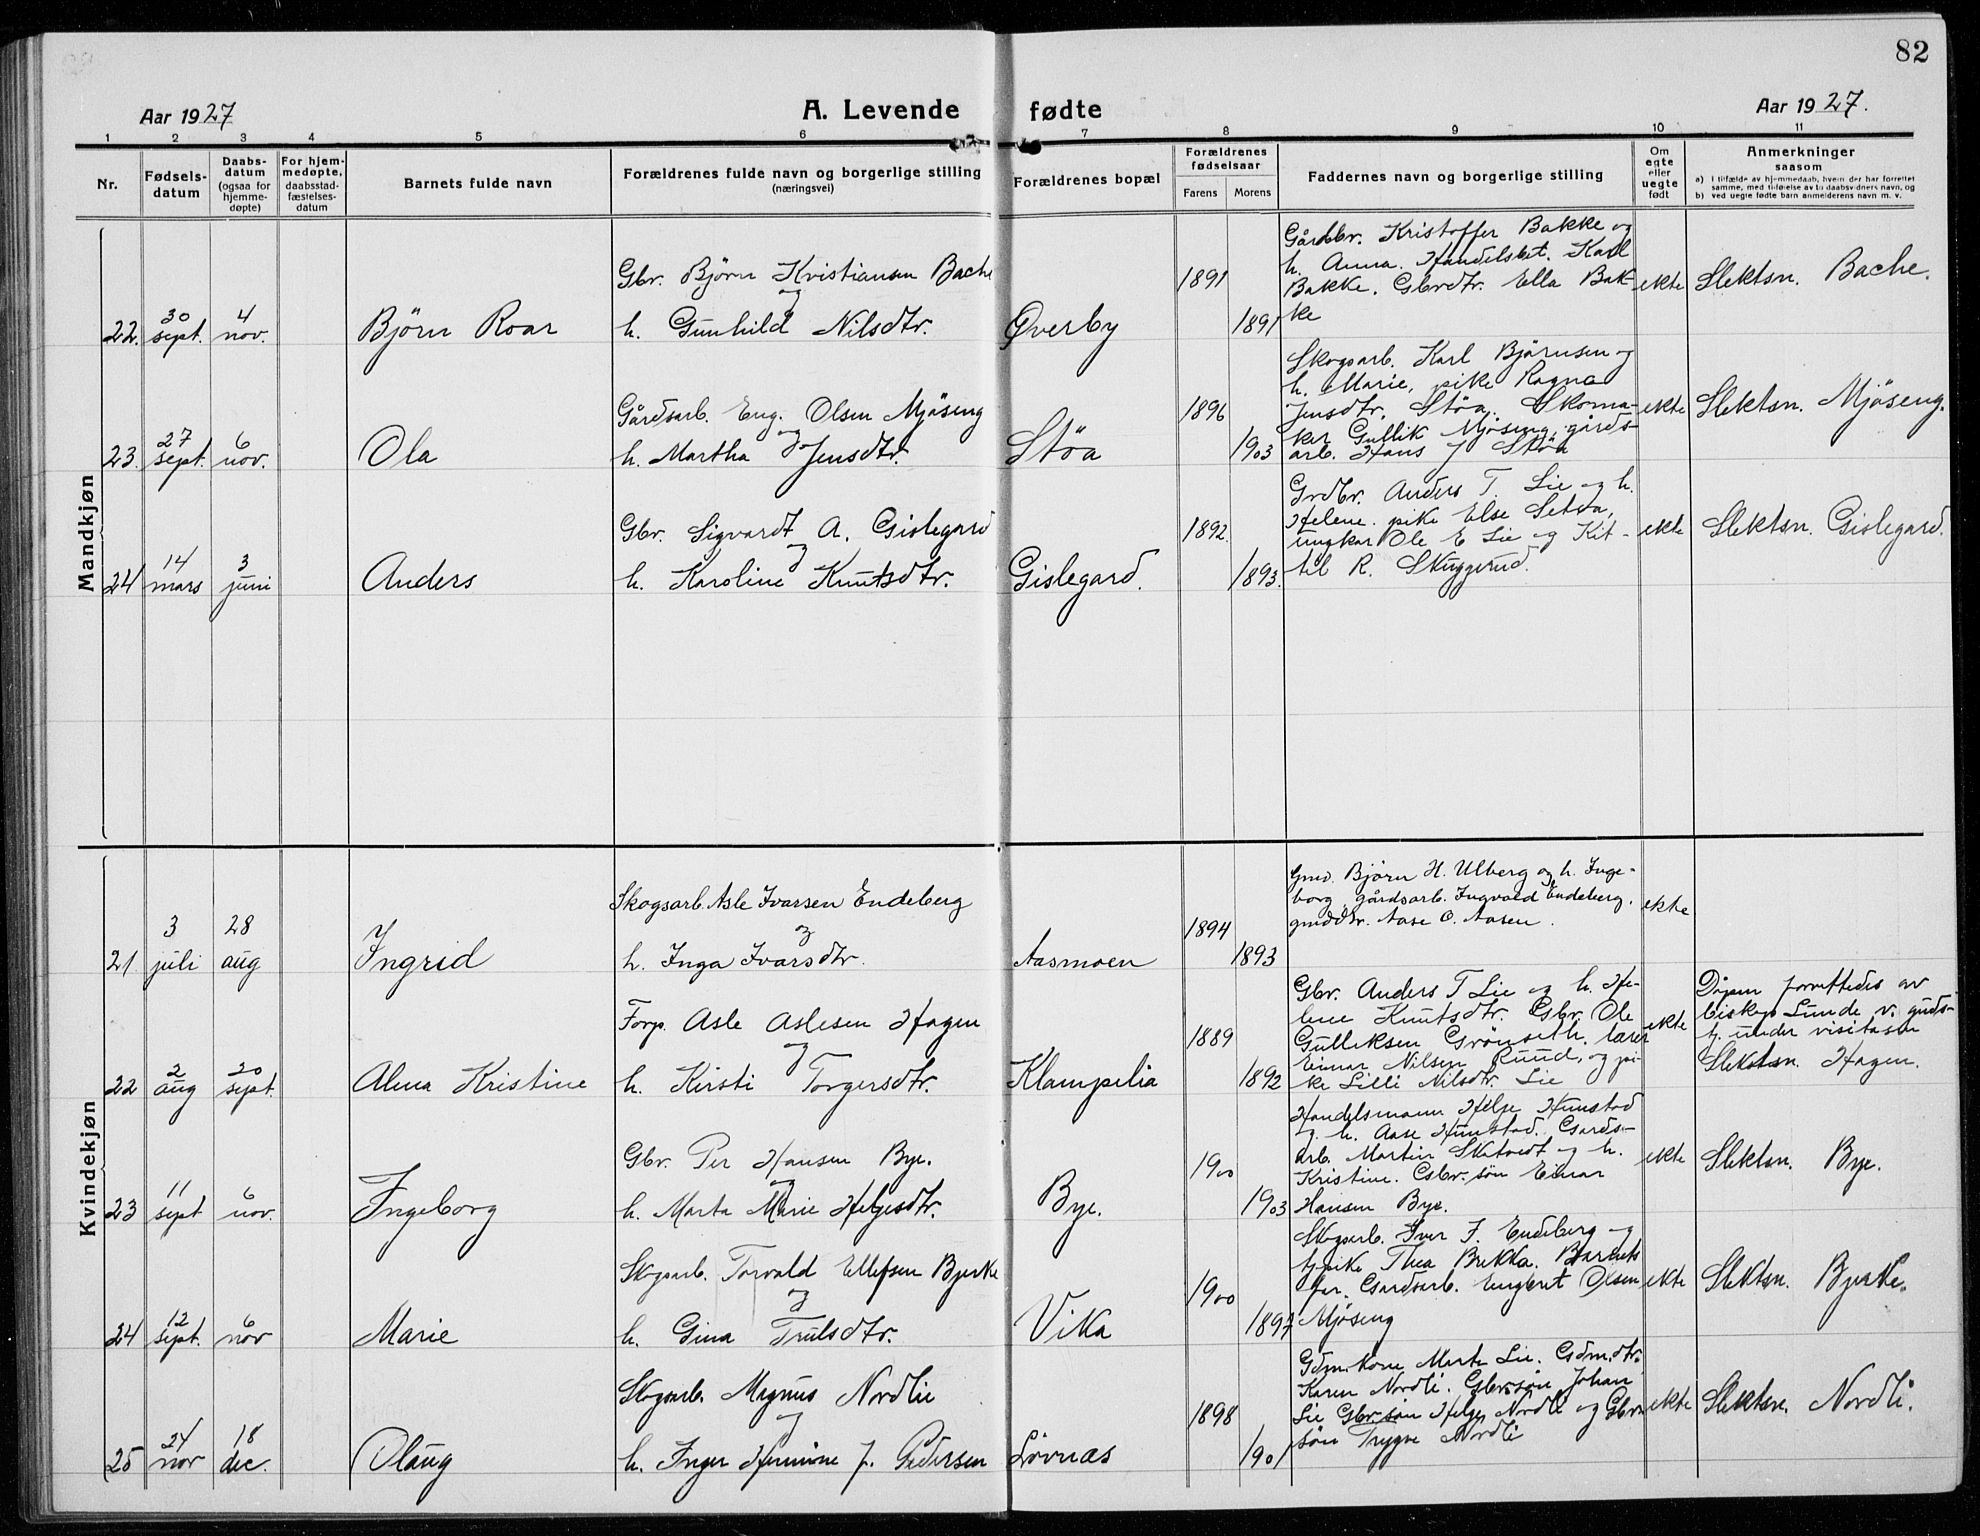 82
Aar 1927
A. Levende fødte
Aar 1927.
1 2 3 4 5 6 7 8 9 10 11
Nr.
Fødsels-
datum
Daabs-
datum
(ogsaa for
hjemme-
døpte)
For hjem-
medøpte,
daabsstad-
fæstelses-
datum
Barnets fulde navn
Forældrenes fulde navn og borgerlige stilling
(næringsvei)
Forældrenes bopæl
Forældrenes
fødselsaar
Farens Morens
Faddernes navn og borgerlige stilling
Om
egte
eller
uegte
født
Anmerkninger
saasom
a) i tilfælde av hjemmedaab, hvem der har forrettet
samme, med tilføielse av to daabsvidners navn, og
b) ved uegte fødte barn anmelderens navn m. v.
Mandkjøn
22. 30 sept. 4 nov.
Bjørn Roar
Gbr. Bjørn Kristiansen Bache
og
h. Gunhild Nilsdtr.
Øverby
1891
1891
Gårdbr. Kristoffer Bakke og
h. Anna. Handelsbet. Karl
Bakke. Gbrdtr. Ella Bak-
ke
ekte
Slektsn. Bache.
23. 27 sept. 6 nov.
Ola
Gårdsarb. Eng. Olsen Mjøseng
og
h. Martha Jensdtr.
Støa
1896
1903
Skogsarb. Karl Bjørnsen og
h. Marie, pike Ragna
Jensdtr. Støa. Skoma-
ker Gullik Mjøseng, gårds-
arb. Hans J Støa
ekte
Slektsn. Mjøseng.
24 14 mars 3 juni
Anders
Gbr. Sigvardt A. Gislegard
og
h. Karoline Knutsdtr.
Gislegard.
1892.
1893.
Grdbr. Anders T. Lie og h.
Helene. pike Else Setva,
ungkar Ole E Lie og Kit-
til R. Skuggerud.
ekte
Slektsn. Gislegard.
Kvindekjøn
21 3 juli 28 aug
Ingrid
Skogsarb. Asle Ivarsen Endeberg
og
h. Inga Ivarsdtr.
Aasmoen
1894
1893
Gmd. Bjørn H. Ulberg og h. Inge-
borg, gårdsarb. Ingvald Endeberg.
gmddtr. Aase O. Aasen.
ekte
22 2 aug 20 sept.
Alma Kristine
Forp. Asle Aslesen Hagen
og
h. Kirsti Torgersdtr.
Klampelia
1889
1892
Gbr. Anders T Lie og h. He-
lene Knutsdtr. Gbr. Ole
Gulleksen Grønseth. lærer
Einar Nilsen Ruud, og pi-
ke Lilli Nilsdtr. Lie
ekte
Dåpen forrettedes av
biskop Lunde v. guds-
tj. under visitasen
Slektsn. Hagen.
23 11 sept 6 nov.
Ingeborg
Gbr. Per Hansen Bye.
og
h. Marta Marie Helgesdtr.
Bye.
1900
1903
Handelsmann Helge Hunstad
og h. Aase Hunstad. Gards-
arb. Martin Skatvedt og h.
Kristine. Gbr. søn Einar
Hansen Bye.
ekte
Slektsn. Bye.
24 12 sept. 6 nov
Marie
Skogsarb. Torvald Ellefsen Bjerke
og
h. Gina Trulsdtr.
Vika
1900
1897
Skogsarb. Iver I. Endeberg og
tj.pike Thea Brekka. Barnets
far. Gardsarb. Engbret Olsen
Mjøseng
ekte
Slektsn. Bjerke.
25 24 nov 18 dec.
Olaug
Skogsarb. Magnus Nordlie
og
h. Inger Hermine J. Pedersen
Løvnæs
1898
1901
Gdm.kone Marte Lie. Gdm.dtr.
Karen Nordli. Gbr.søn Johan
Lie Gbr.søn Helge Nordli og Gbr.
søn Trygve Nordli
ekte
Slektsn. Nordli.